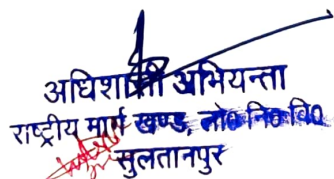 अधिशासी अभियन्ता
राष्ट्रीय मार्ग खण्ड, लो० नि० वि०
सुलतानपुर